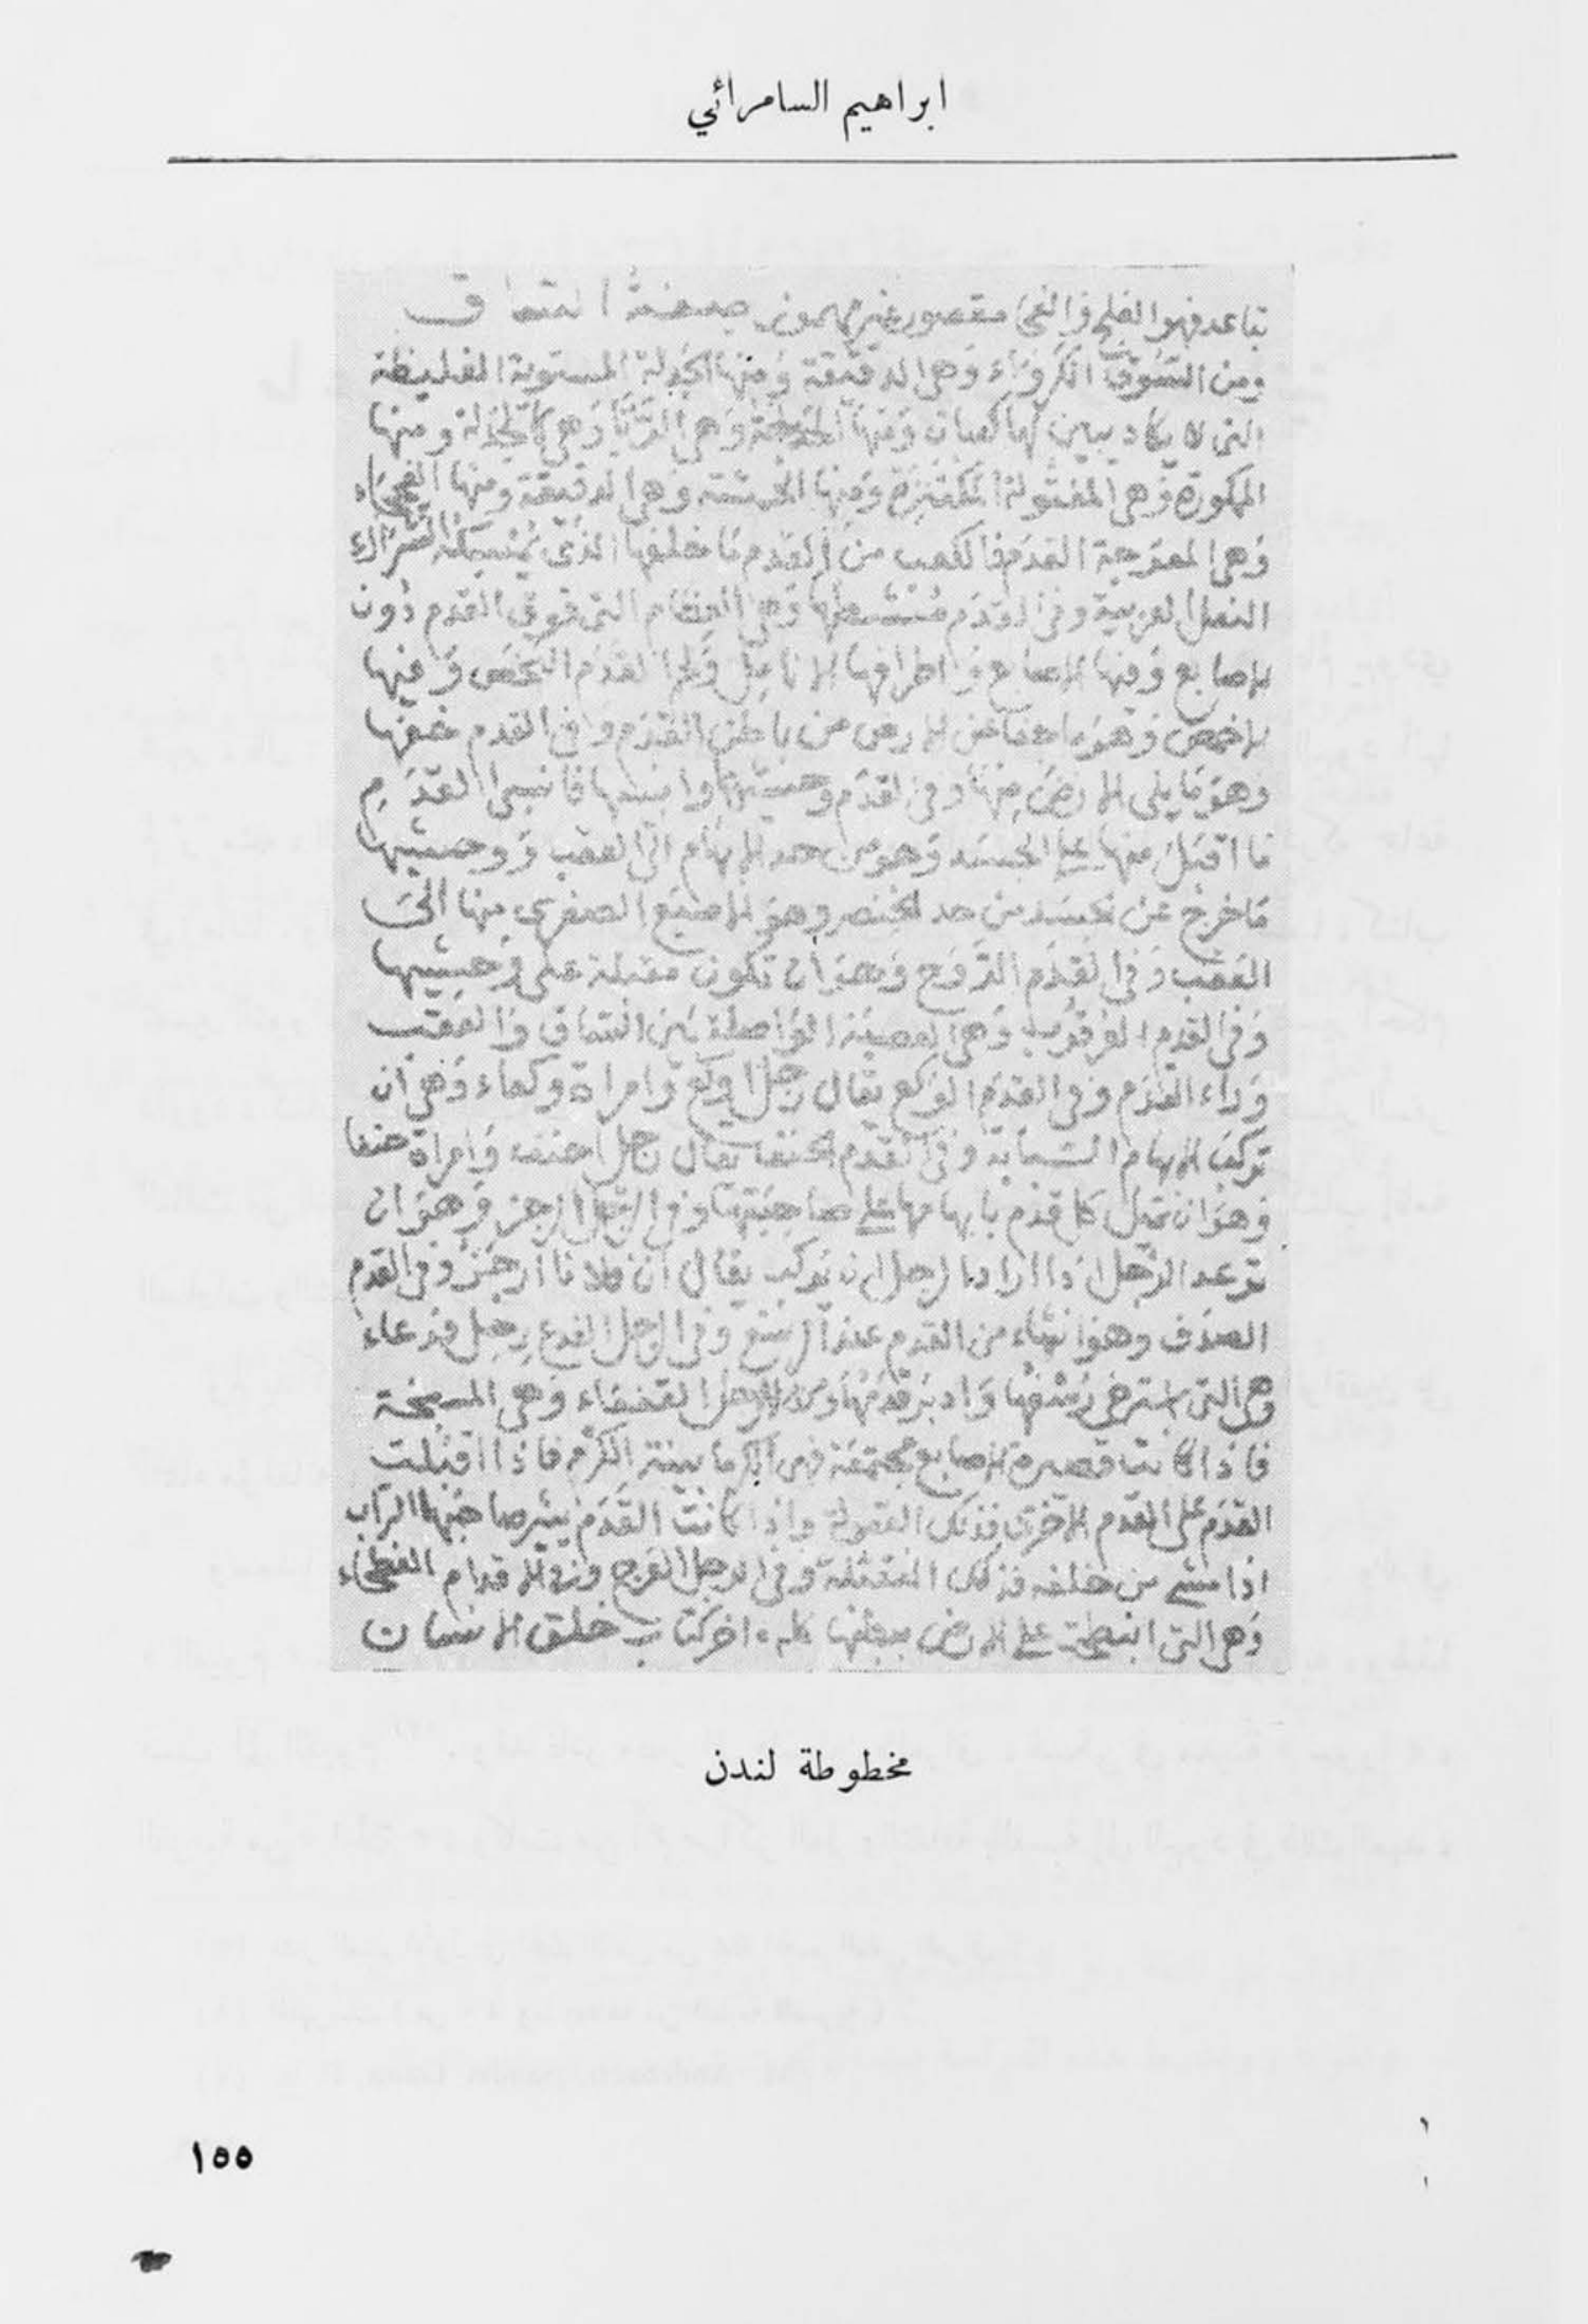 ابراهيم السامرائي
تباعد فهو الفلج والفجا مقصور غير مهموز صفة الساق
ومن السوق الكرواء وهي الدقيقة ومنها الجدلة المستوية الغليظة
التي لا يكاد يبين لها كعبان ومنها وهي الريا وهي كالخدلة ومنها
الممكورة وهي المفتولة المكتنزة ومنها الحمشة وهي الدقيقة ومنها الفحجاء
وهي المعوجة القدم فالكعب من القدم ما خلفها الذي يمسك الشراك
النعل العربية وفي القدم مشطها وهي العظام التي فوق القدم دون
الاصابع وفيها الاصابع واطرافها الانامل ولحم القدم البخص وفيها
الاخمص وهو ما جفا عن الارض من باطن القدم وفي القدم خفها
وهو ما يلي الارض منها وفي القدم وحشيها وانسيها فانسي القدم
ما اقبل منها على الجسد وهو من حد الابهام الى العقب ووحشيها
ما خرج عن الجسد من حد الخنصر وهو الاصبع الصغرى منها الى
العقب وفي القدم الروح وهو ان تكون مقبلة على وحشيها
وفي القدم العرقوب وهي العصبة الواصلة بين الساق والعقب
وراء القدم وفي القدم الوكع يقال رجل اوكع وامراة وكعاء وهي ان
تركب الابهام السبابة وفي القدم الحنف يقال رجل احنف وامراة حنفا
وهو ان تميل كل قدم بابهامها على صاحبتها وفي الرجل الرجز وهو ان
ترعد الرجل اذا اراد الرجل ان يركب يقال ان فلانا ارجز وفي القدم
الصدف وهو انثناء من القدم عند الرسغ وفي الرجل الفدع رجل فدعاء
وهي التي استرخى رسغها وادبر قدمها ومن الارجل القفعاء وهي المسبخة
فاذا كانت قصيرة الاصابع مجتمعة فهي الكزما بينة الكزم فاذا اقبلت
القدم على القدم الاخرى فذلك القعولة واذا كانت القدم يثير صاحبها التراب
اذا مشى من خلفه فذلك النقثلة وفي الرجل العرج ومن الاقدام الفطحاء
وهي التي انبطحت على الارض ببطنها كله اخر كتاب خلق الانسان
مخطوطة لندن
١٥٥